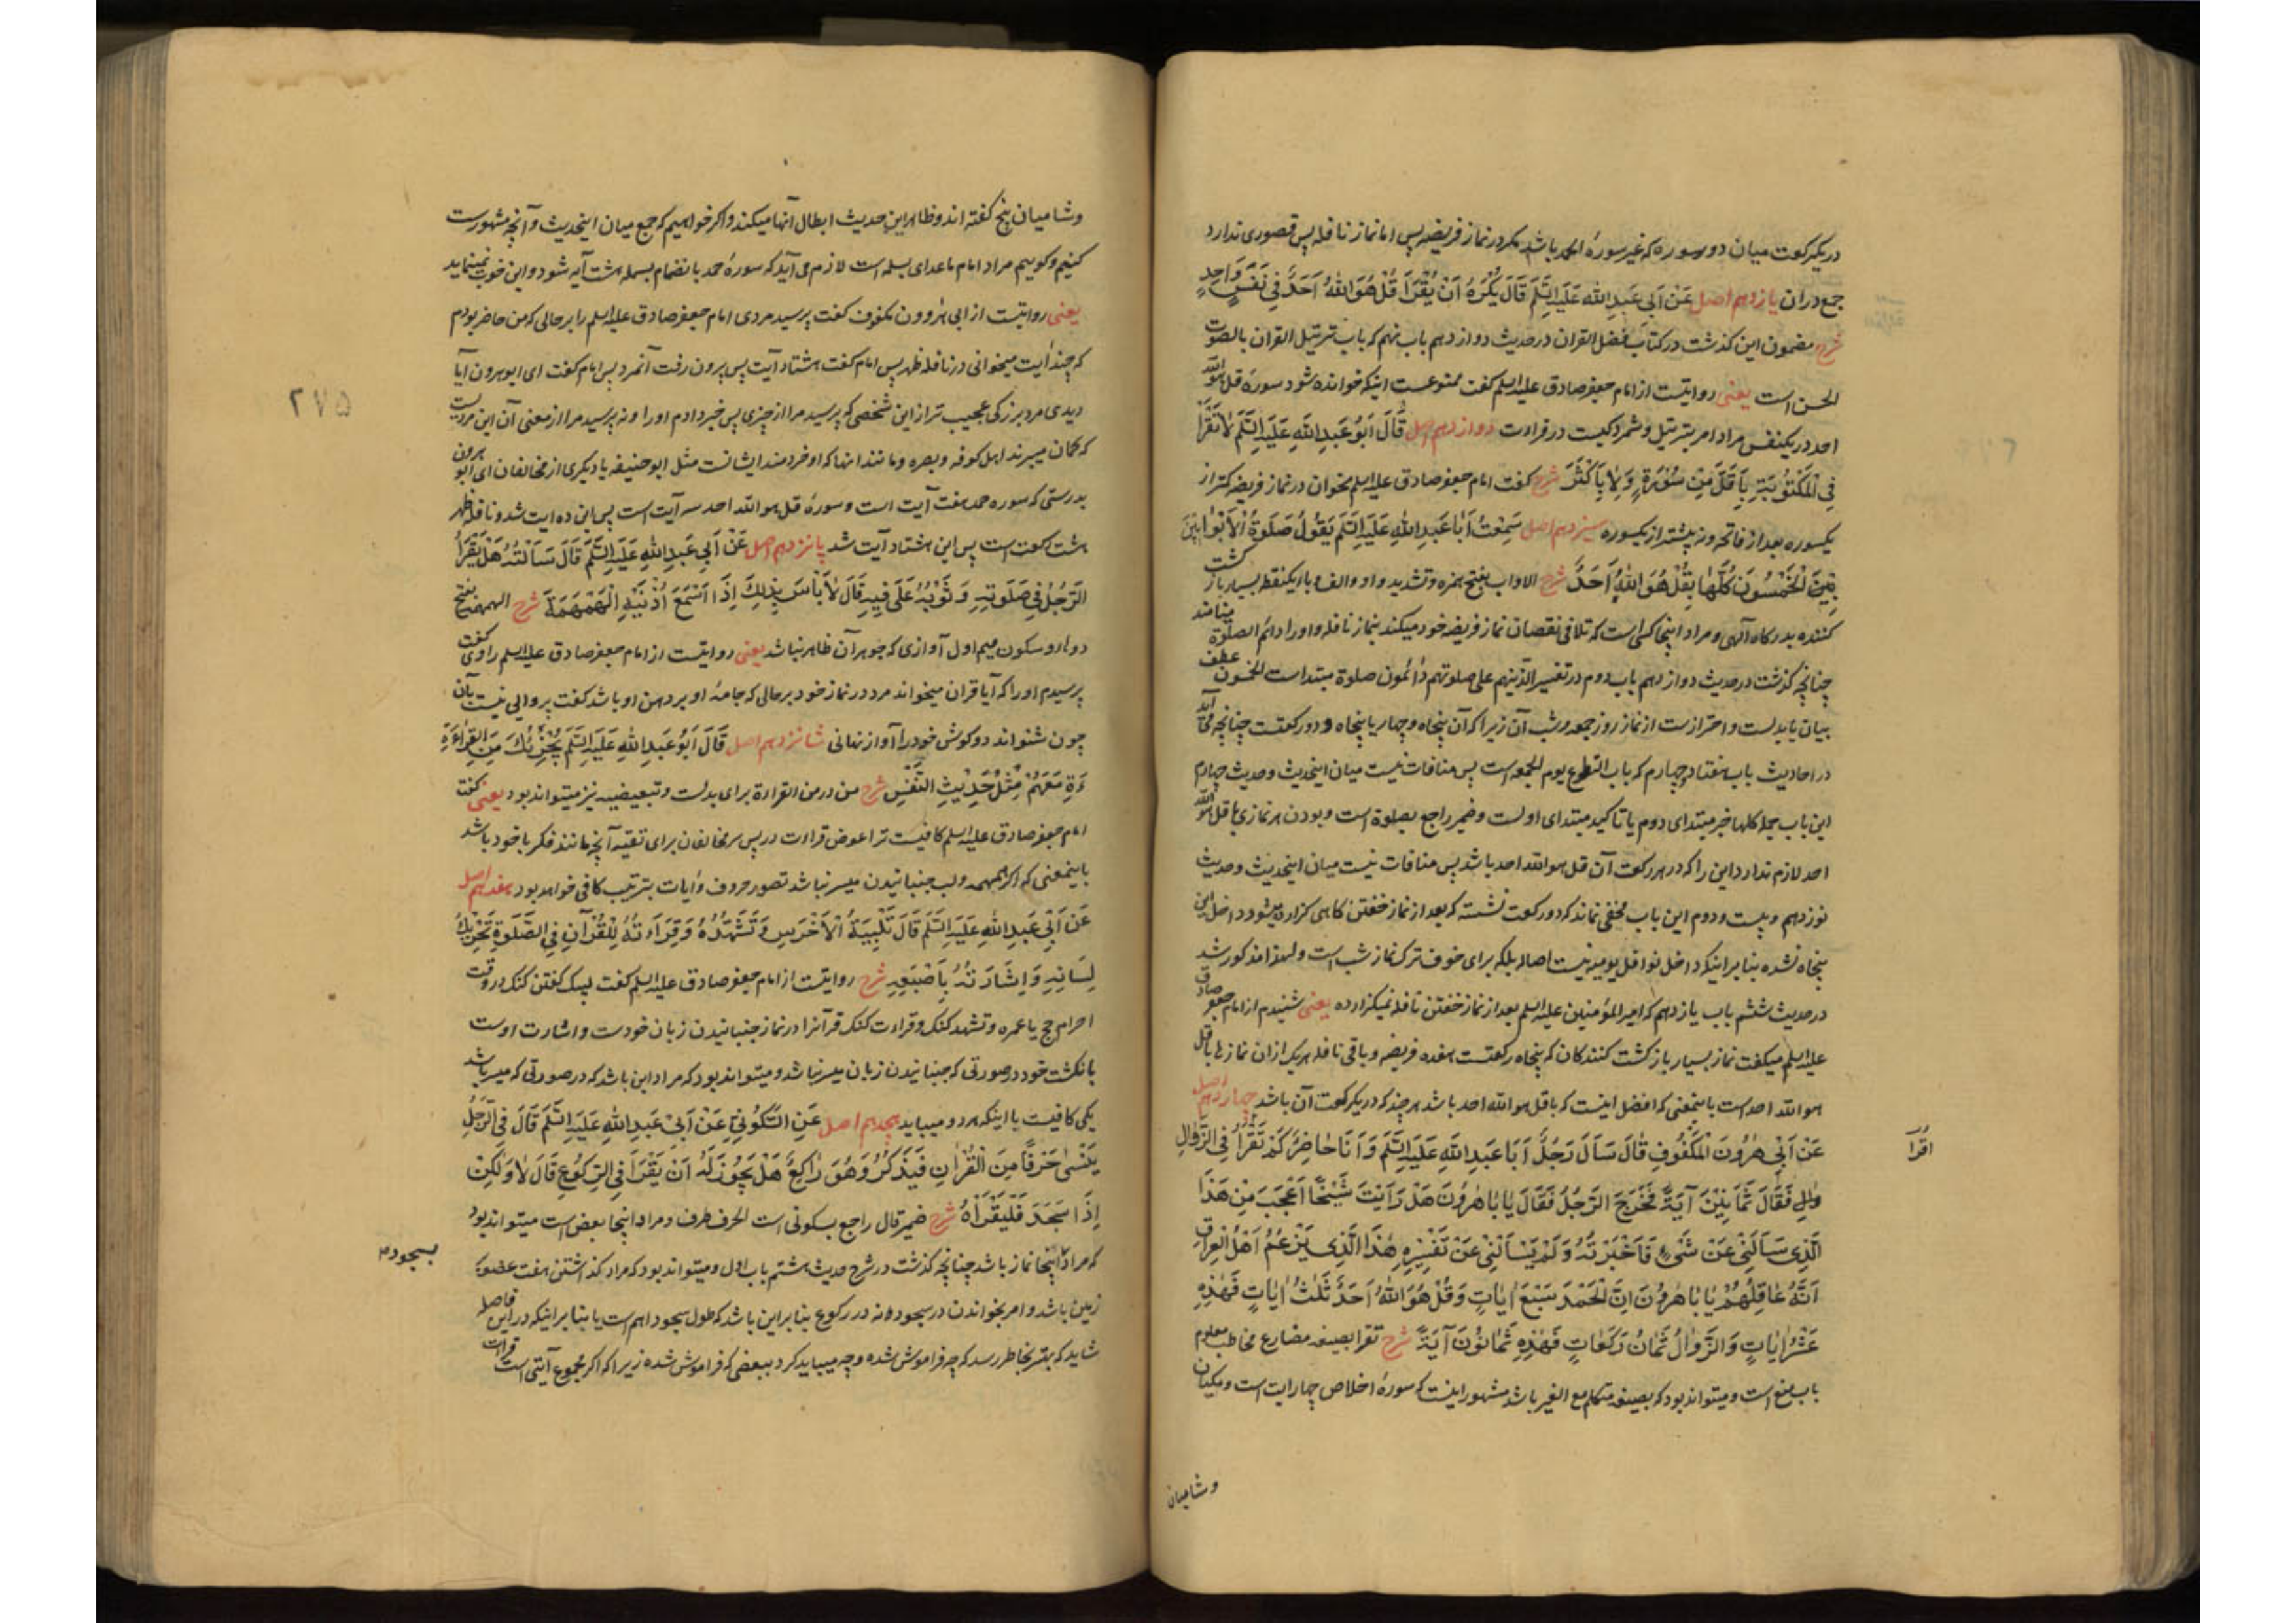 در یکرکعت میان دو سوره که غیر سورهٔ الحمد باشد مکر در نماز فریضه پس اما نماز نافله پس قصوری ندارد
جمع در ان یازدهم اصل عَنْ اَبِی عَبدِ اللّٰه عَلَیهِ السَّلَم قَالَ یُکْرَهُ اَنْ یُقْرَأَ قُلْ هُوَ اللّٰهُ اَحَدٌ فِی نَفَسٍ وَاحِدٍ
شرح مضمون این کذشت در کتاب فضل القران در حدیث دوازدهم باب نهم که باب ترتیل القران بالصوت
الحسن است یعنی روایتست از امام جعفر صادق علیه السلم کفت ممنوعست اینکه خوانده شود سورهٔ قل هو اللّٰه
احد در یکنفس مراد امر بترتیل و شمرده کیست در قراءت دوازدهم اصل قَالَ اَبُو عَبدِ اللّٰهِ عَلَیهِ السَّلَم لَا تَقْرَأْ
فِی الْمَکْتُوبَةِ بِأَقَلَّ مِنْ سُورَةٍ وَلَا بِأَکْثَرَ شرح کفت امام جعفر صادق علیه السلم مخوان در نماز فریضه کمتر از
یکسوره بعد از فاتحه و نه بیشتر از یکسوره سیزدهم اصل سَمِعْتُ اَبَا عَبدِ اللّٰهِ عَلَیهِ السَّلَم یَقُولُ صَلَوةُ الْاَوَّابِینَ
الْخَمْسُونَ کُلُّهَا بِقُلْ هُوَ اللّٰهُ اَحَدٌ شرح الاواب بفتح همزه و تشدید واو و الف و با ایکنقطه بسیار باز کشت
کننده بدرکاه آلهی و مراد اینجا کسی است که تلافی نقصان نماز فریضه خود میکند بنماز نافله و اورا دائم الصلوة مینامند
چنانچه کذشت در حدیث دوازدهم باب دوم در تفسیر الذین هم علی صلوتهم دائمون صلوة مبتداست الخمسون عطف
بیان یا بدلست و احترازست از نماز روز جمعه و شب آن زیرا که آن پنجاه و چهار یا پنجاه و دو رکعتست چنانچه می آید
در احادیث باب هفتاد و چهارم که باب التطوع یوم الجمعه است پس منافات نیست میان اینحدیث و حدیث چهارم
این باب جمله کلها خبر مبتدای دوم یا تاکید مبتدای اولست و ضمیر راجع بصلوة است و بودن هر نمازی با قل هو اللّٰه
احد لازم ندارد این را که در هر رکعت آن قل هو اللّٰه احد باشد پس منافات نیست میان اینحدیث و حدیث
نوزدهم و بیست و دوم این باب مخفی نماند که دو رکعت نشسته که بعد از نماز خفتن کاهی کزارده میشود داخل این
پنجاه نشده بنا بر اینکه داخل نوافل یومیه نیست اصالة بلکه برای خوف ترک نماز شب است و لهذا مذکور شد
در حدیث ششم باب یازدهم که امیر المؤمنین علیه السلم بعد از نماز خفتن نافله نمیکزارده یعنی شنیدم از امام جعفر صادق
علیه السلم میکفت نماز بسیار باز کشت کنندکان که پنجاه رکعتست هفده فریضه و باقی نافله هر یک ازان نمازها با قل
هو اللّٰه احد است باینمعنی که افضل اینست که با قل هو اللّٰه احد باشد هر چند که در یکرکعت آن باشد چهاردهم اصل
عَنْ اَبِی هٰرُونَ الْمَکْفُوفِ قَالَ سَاَلَ رَجُلٌ اَبَا عَبدِ اللّٰهِ عَلَیهِ السَّلَم وَ اَنَا حَاضِرٌ کَمْ تَقْرَأُ فِی الزَّوَالِ
اقرا
فَقَالَ ثَمَانِینَ آیَةً فَخَرَجَ الرَّجُلُ فَقَالَ یَا بَا هٰرُونَ هَلْ رَاَیْتَ شَیْخًا اَعْجَبَ مِنْ هَذَا
الَّذِی سَاَلَنِی عَنْ شَیْءٍ فَاَخْبَرْتُهُ وَ لَمْ یَسْاَلْنِی عَنْ تَفْسِیرِهِ هٰذَا الَّذِی یَزْعُمُ اَهْلُ الْعِرَاقِ
اَنَّهُ عَاقِلُهُمْ یَا بَا هٰرُونَ اِنَّ الْحَمْدَ سَبْعُ اٰیَاتٍ وَ قُلْ هُوَ اللّٰهُ اَحَدٌ ثَلٰثُ اٰیَاتٍ فَهٰذِهِ
عَشْرُ اٰیَاتٍ وَ الزَّوَالُ ثَمَانُ رَکَعَاتٍ فَهٰذِهِ ثَمَانُونَ آیَةً شرح تقرا بصیغه مضارع مخاطب معلوم
باب منع است و میتواند بود که بصیغه متکلم مع الغیر باشد مشهور اینست که سورهٔ اخلاص چهار ایت است و مکیان
و شامیان
و شامیان پنج کفته اند و ظاهر این حدیث ابطال آنها میکند و اکر خواهیم که جمع میان اینحدیث و آنچه مشهورست
کنیم و کوییم مراد امام ماعدای بسمله است لازم می آید که سورهٔ حمد با نضمام بسمله هشت آیه شود و این خوب نمینماید
یعنی روایتست از ابی هٰرون مکفوف کفت پرسید مردی امام جعفر صادق علیه السلم را بر حالی که من حاضر بودم
که چند آیت میخوانی در نافله ظهر پس امام کفت هشتاد آیت پس بیرون رفت آنمرد پس امام کفت ای ابو هرون آیا
دیدی مرد بزرکی عجیب تر از این شخصی که پرسید مرا از چیزی پس خبر دادم اورا و نه پرسید مرا از معنی آن این مردیست
که کمان میبرند اهل کوفه و بصره و مانند انها که او خردمند ایشانست مثل ابو حنیفه یا دیکری از مخالفان ای ابو هرون
بدرستی که سوره حمد هفت آیت است و سورهٔ قل هو اللّٰه احد سه آیت است پس این ده ایت شد و نافله ظهر
هشت رکعت است پس این هشتاد آیت شد پانزدهم اصل عَنْ اَبِی عَبدِ اللّٰهِ عَلَیهِ السَّلَم قَالَ سَاَلْتُهُ هَلْ یَقْرَأُ
الرَّجُلُ فِی صَلَوتِهِ وَ ثَوْبُهُ عَلَی فِیهِ قَالَ لَا بَاْسَ بِذٰلِکَ اِذَا اَسْمَعَ اُذُنَیْهِ الْهَمْهَمَةَ شرح الهمهمه بفتح
دو ها و سکون میم اول آوازی که جوهر آن ظاهر نباشد یعنی روایتست از امام جعفر صادق علیه السلم راوی کفت
پرسیدم اورا که آیا قران میخواند مرد در نماز خود بر حالی که جامهٔ او بر دهن او باشد کفت پروایی نیست بآن
چون شنواند دو کوش خود را آواز نهانی شانزدهم اصل قَالَ اَبُو عَبدِ اللّٰهِ عَلَیهِ السَّلَم یُجْزِئُکَ مِنَ الْقِرَاءَةِ
مَعَهُمْ مِثْلُ حَدِیثِ النَّفْسِ شرح من در من القراءة برای بدلست و تبعیضیه نیز میتواند بود یعنی کفت
امام جعفر صادق علیه السلم کافیست ترا عوض قراءت در پس سر مخالفان برای تقیه آنچه مانند فکر با خود باشد
باینمعنی که اکر همهمه و لب جنبانیدن میسر نباشد تصور حروف و ایات بترتیب کافی خواهد بود هفدهم اصل
عَنْ اَبِی عَبدِ اللّٰهِ عَلَیهِ السَّلَم قَالَ تَلْبِیَةُ الْاَخْرَسِ وَ تَشَهُّدُهُ وَ قِرَاءَتُهُ لِلْقُرْآنِ فِی الصَّلَوةِ تَحْرِیکُ
لِسَانِهِ وَ اِشَارَتُهُ بِاِصْبَعِهِ شرح روایتست از امام جعفر صادق علیه السلم کفت لبیک کفتن کنک در وقت
احرام حج یا عمره و تشهد کنک و قراءت کنک قرآنرا در نماز جنبانیدن زبان خودست و اشارت اوست
بانکشت خود در صورتی که جنبانیدن زبان میسر نباشد و میتواند بود که مراد این باشد که در صورتی که میسر باشد
یکی کافیست با اینکه هر دو میباید هجدهم اصل عَنِ السَّکُونِیِّ عَنْ اَبِی عَبدِ اللّٰهِ عَلَیهِ السَّلَم قَالَ فِی الرَّجُلِ
یَنْسٰی حَرْفًا مِنَ الْقُرْاٰنِ فَیَذْکُرُ وَ هُوَ رَاکِعٌ هَلْ یَجُوزُ لَهُ اَنْ یَقْرَأَ فِی الرُّکُوعِ قَالَ لَا وَلٰکِنْ
اِذَا سَجَدَ فَلْیَقْرَأْهُ شرح ضمیر قال راجع بسکونی است الحرف طرف و مراد اینجا بعض است میتواند بود
که مراد اینجا نماز باشد چنانچه کذشت در شرح حدیث هشتم باب اول و میتواند بود که مراد کذاشتن هفت عضو
بسجود
زمین باشد و امر بخواندن در سجود نه در رکوع بنا بر این باشد که طول سجود اهم است یا بنا بر اینکه در این فاصله
شاید که بهتر بخاطر رسد که چه فراموش شده و چه میباید کرد ببعضی که فراموش شده زیرا که اکر مجموع آیتی است قراءت
۲۷۵